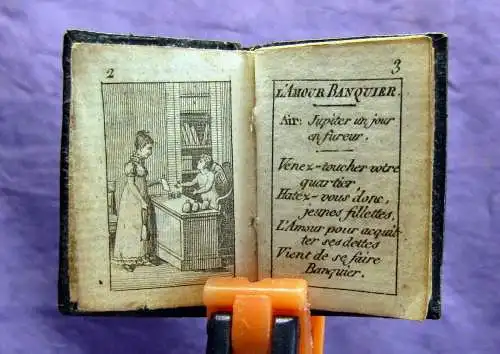 2
3
L'AMOUR BANQUIER.
Air: Jupiter un jour
en fureur.
Venez-toucher votre
quartier,
Hatéz-vous donc,
jeunes fillettes,
L'Amour pour acquit-
ter ses dettes
Vient de se faire
Banquier.